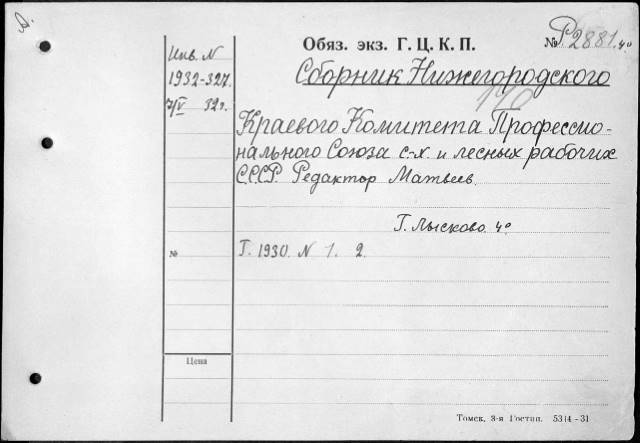 Обяз. экз. Г. Ц. К. П.
№ Р2881. 4°
Инв. N
1932-327.
7/V 32г.
Сборник Нижегородского
170
Краевого Комитета Профессио-
нального Союза с.-х. и лесных рабочих
С.С.С.Р. Редактор Матвеев.
Г. Лысково. 4°
№
Г. 1930. N 1. 2.
Цена
Томск, 3-я Гостип. 5314-31